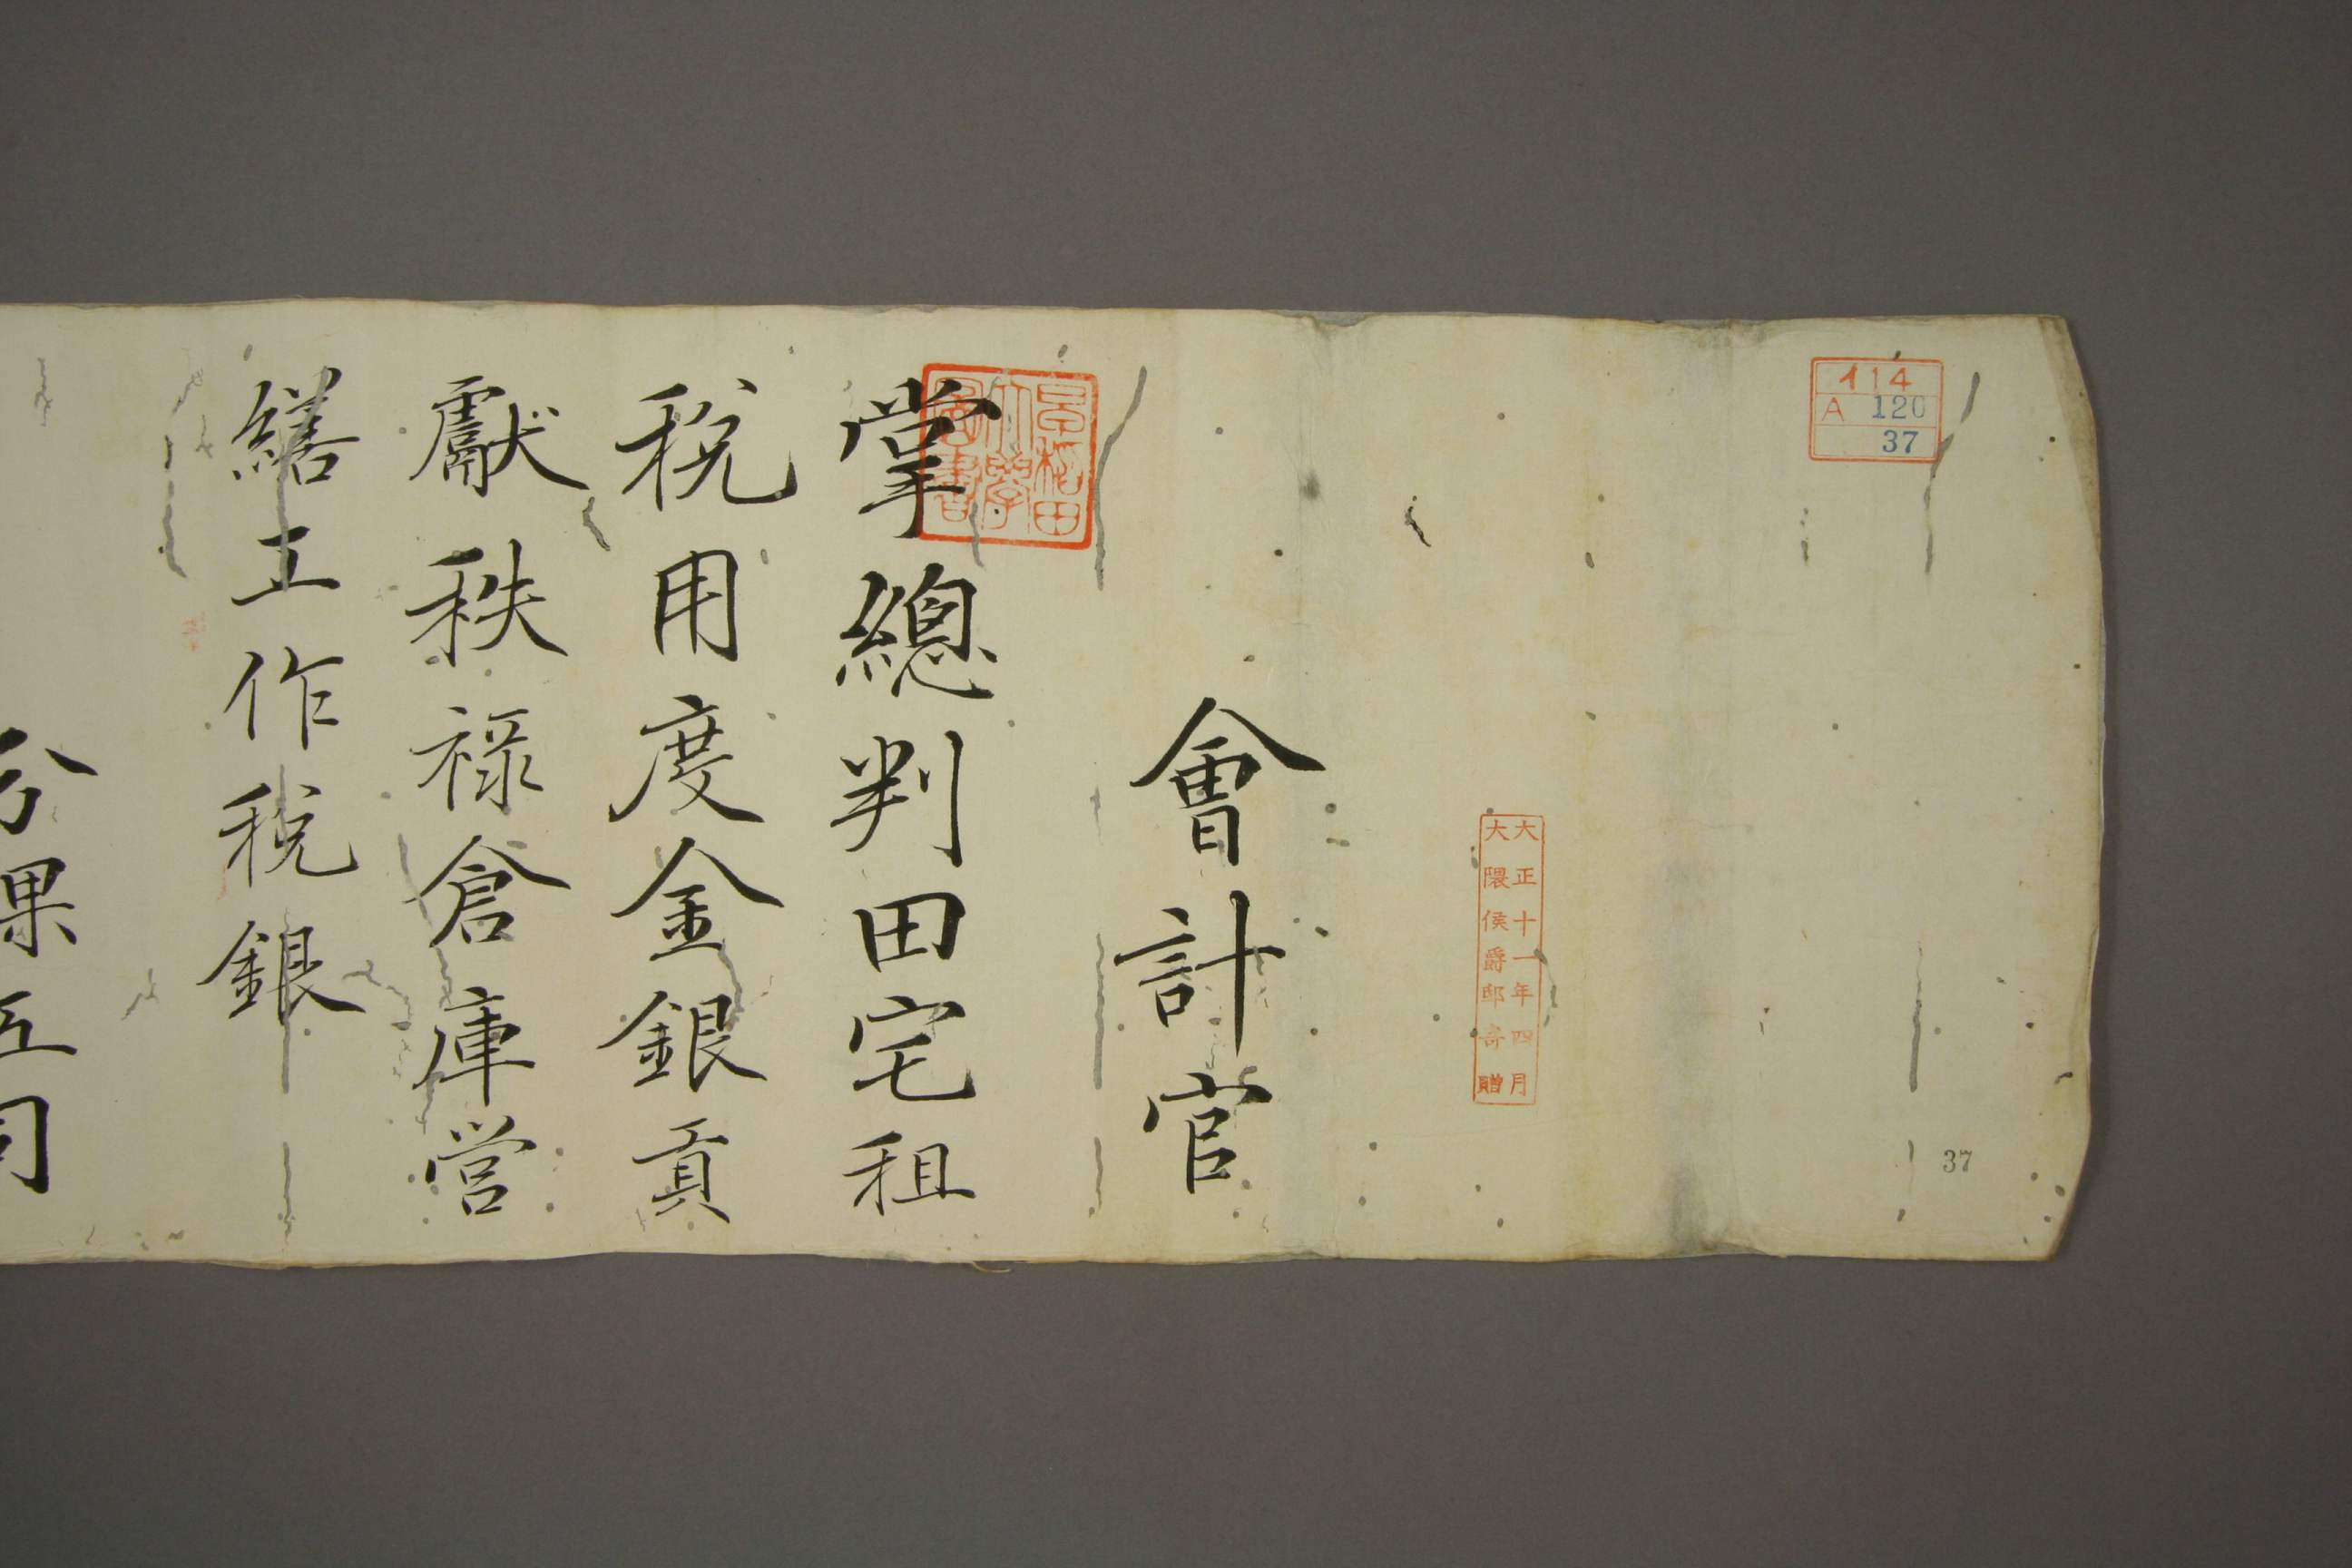 イ14
A 120
37
37
大正十一年四月
大隈侯爵邸寄贈
會計官
早稲田
大學
圖書
掌總判田宅租
税用度金銀貢
獻秩禄倉庫営
繕工作税銀
分課五司